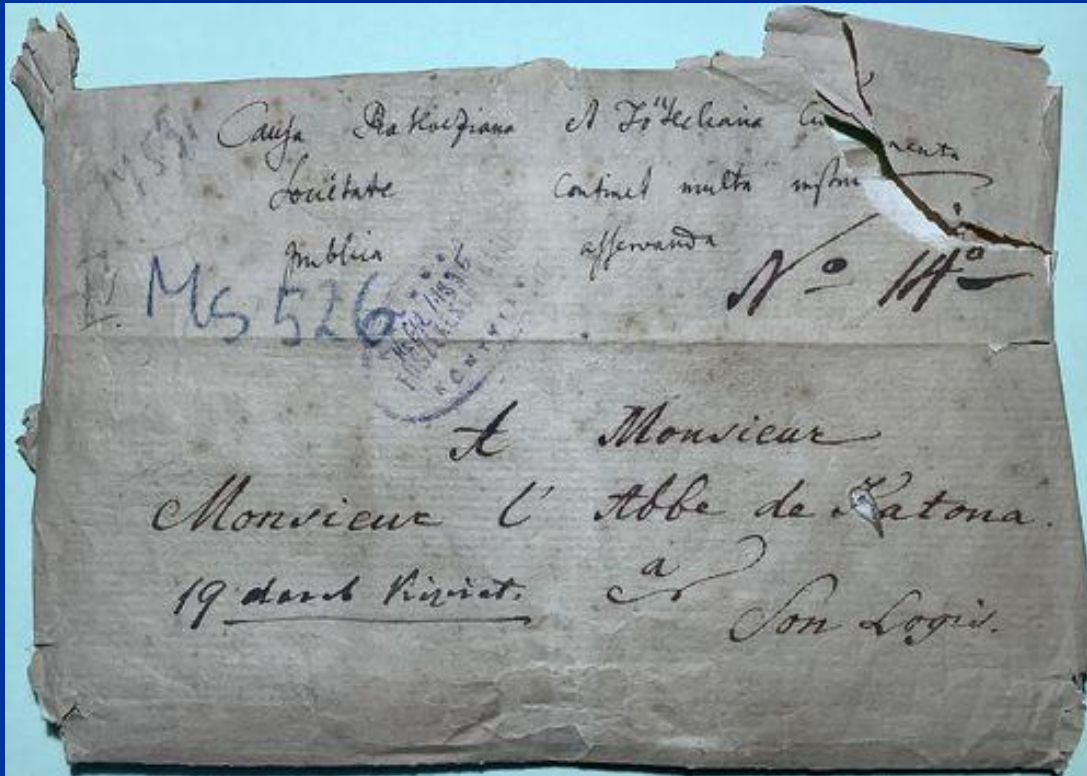 Causa Rakocziana A Tökeliana cu
Societate Continet multa instru menta
publica asservanda
Nº 14º
Ms 526
A Monsieur
Monsieur l' Abbe de Katona.
19 darab kivirat. a
Son Logis.